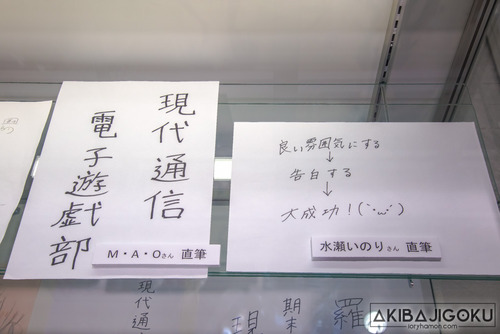 現代通信
電子遊戯部
M・A・Oさん 直筆
良い雰囲気にする
↓
告白する
↓
大成功!(`･ω･´)
水瀬いのりさん 直筆
現代通
現
期末
羅
AKIBAJIGOKU
loryhamon.com